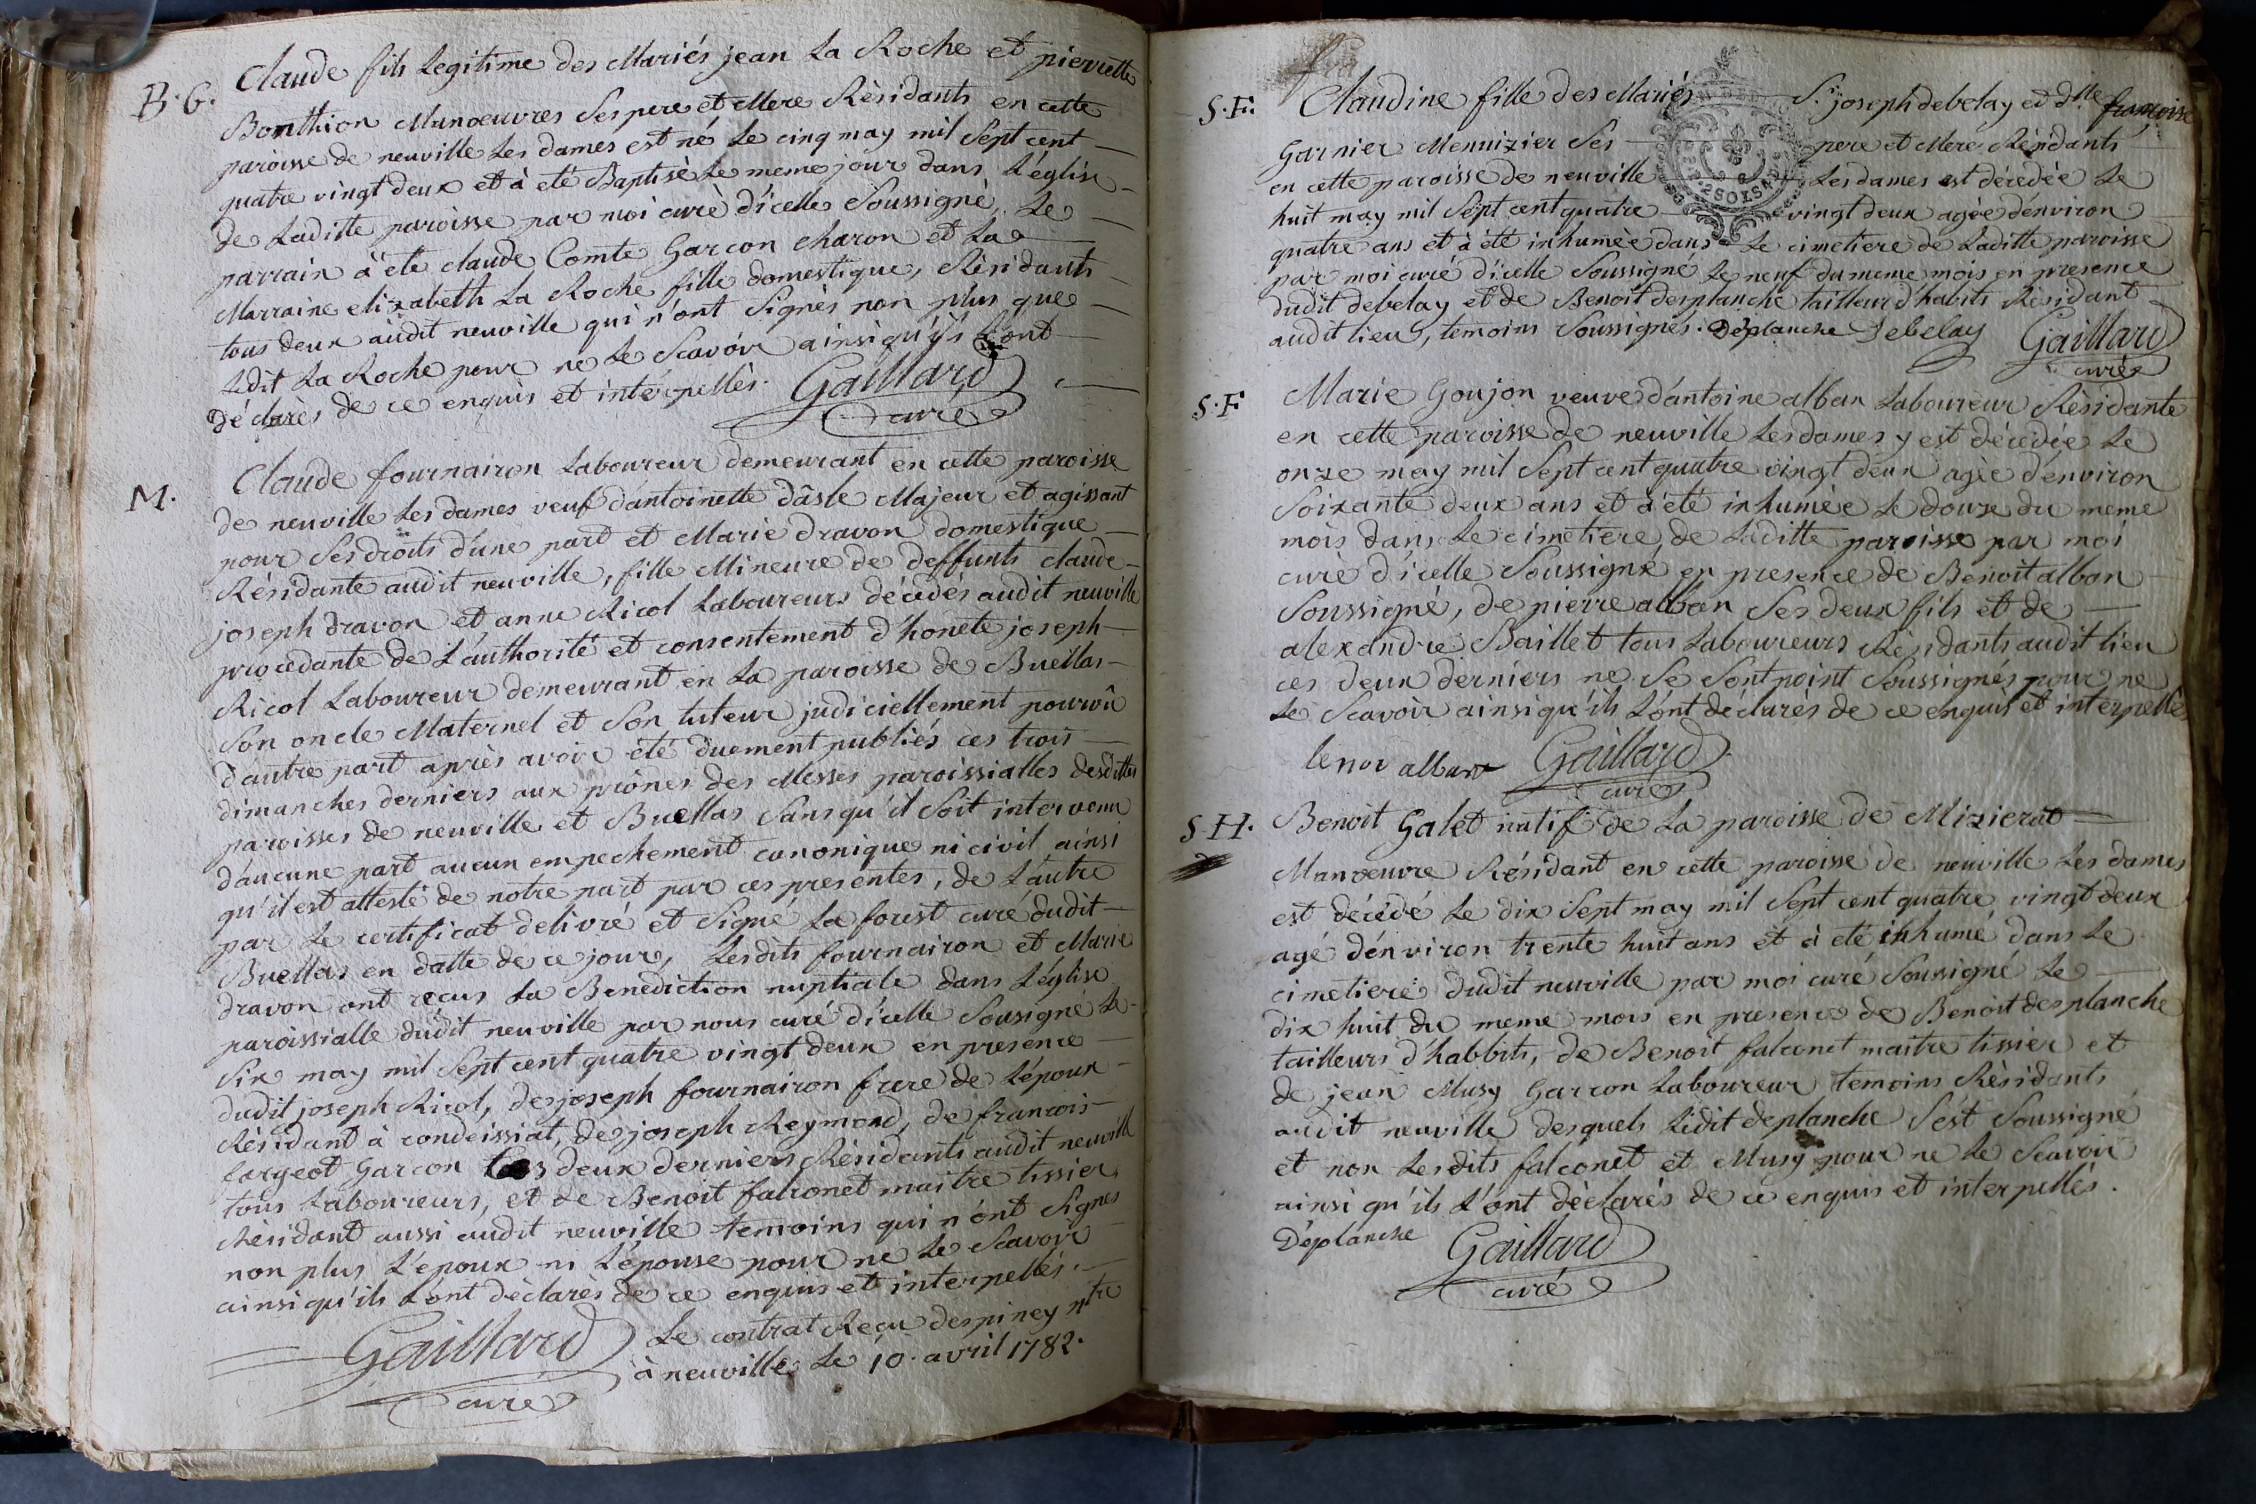 B. G.
Claude fils Legitime des Mariés jean La Roche et pierrette
Bonthion Manoeuvres Ses pere et Mere Résidants en cette
paroisse de neuville Les dames est né Le cinq may mil Sept cent
quatre vingt deux et à eté Baptisé Le meme jour dans L'église
de Laditte paroisse par moi curé d'icelle Soussigné. Le
parrain à eté claude Comte Garcon charon et La
Marraine elizabeth La Roche fille domestique, Résidants
tous deux audit neuville qui n'ont Signés non plus que
Ledit La Roche pour ne Le Scavoir ainsi qu'ils L'ont
déclarès de ce enquis et interpellès. Gaillard
curé
M.
Claude fournairon Laboureur demeurant en cette paroisse
de neuville Les dames veuf d'antoinette dâsle Majeur et agissant
pour Ses droits d'une part et Marie dravon domestique
Résidante audit neuville, fille Mineure de deffunts claude
joseph dravon et anne Ricol Laboureurs décédés audit neuville
procedante de L'authorité et consentement d'honete joseph
Ricol Laboureur demeurant en La paroisse de Buellas
Son oncle Maternel et Son tuteur judiciellement pourvû
d'autre part après avoir été duement publiés ces trois
dimanches derniers aux prônes des Messes paroissialles desdittes
paroisses de neuville et Buellas Sans qu'il Soit intervenu
d'aucune part aucun empechement canonique ni civil ainsi
qu'il est attesté de notre part par ces presentes, de L'autre
par Le certificat delivré et Signé La forest curé dudit
Buellas en datte de ce jour, Lesdits fournairon et Marie
dravon ont reçus La Benediction nuptiale dans L'église
paroissialle dudit neuville par nous curé d'icelle Sousigné Le
Six may mil Sept cent quatre vingt deux en presence
dudit joseph Ricol, de joseph fournairon frere de L'époux
Résidant à condeissiat, de joseph Reymond, de francois
fargeot Garcon Les deux derniers Résidants audit neuville
tous Laboureurs, et de Benoit falconet maitre tissier
Résidant aussi audit neuville temoins qui n'ont Signés
non plus L'époux ni L'épouse pour ne Le Scavoir
ainsi qu'ils L'ont déclarés de ce enquis et interpellés.
Gaillard Le contrat Reçu despiney ntre
curé à neuville Le 10. avril 1782.
S. F.
Claudine fille des Mariés Sr. joseph debelay et dlle francoise
Garnier Menuizier Ses pere et Mere Résidants
en cette paroisse de neuville Les dames est décedée Le
huit may mil Sept cent quatre vingt deux agée d'environ
quatre ans et à été inhumée dans Le cimetiere de Laditte paroisse
par moi curé d'icelle Soussigné Le neuf du meme mois en presence
dudit debelay et de Benoit desplanche tailleur d'habits Résidant
audit lieu, temoins Soussignés. Déplanche Debelay Gaillard
curé
S. F
Marie Goujon veuve d'antoine alban Laboureur Résidante
en cette paroisse de neuville Les dames y est décedée Le
onze may mil Sept cent quatre vingt deux agée d'environ
Soixante deux ans et à été inhumée Le douze du meme
mois dans Le cimetiere de Laditte paroisse par moi
curé d'icelle Soussigné en presence de Benoit alban
Soussigné, de pierre alban Ses deux fils et de
alexandre Baillet tous Laboureurs Résidants audit lieu
ces deux derniers ne Se Sont point Soussignés pour ne
Le Scavoir ainsi qu'ils L'ont déclarés de ce enquis et interpellés
alban Gaillard
curé
S. H.
Benoit Galet natif de La paroisse de Mizieriat
Manoeuvre Résidant en cette paroisse de neuville Les dames
est décédé Le dix Sept may mil Sept cent quatre vingt deux
agé d'environ trente huit ans et à eté inhumé dans Le
cimetiere dudit neuville par moi curé Soussigné Le
dix huit du meme mois en presence de Benoit desplanche
tailleurs d'habbits, de Benoit falconet maitre tissier et
de jean Musy Garcon Laboureur temoins Résidants
audit neuville desquels Ledit deplanche S'est Soussigné
et non Lesdits falconet et Musy pour ne Le Scavoir
ainsi qu'ils L'ont déclarés de ce enquis et interpellés.
Déplanche Gaillard
curé